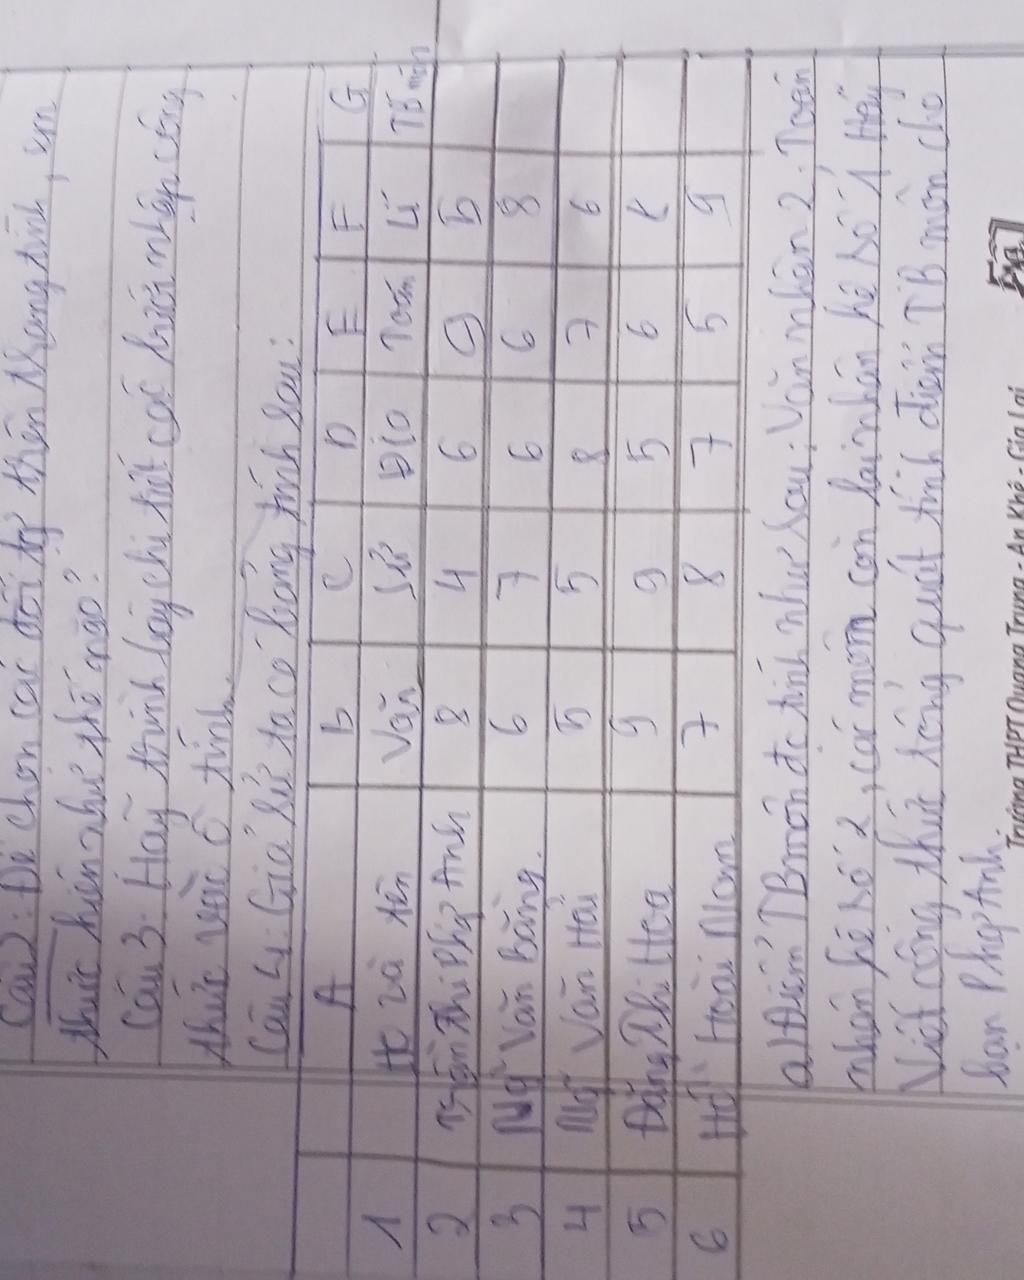 Câu 2: Để chọn các đối tượng trên trang tính, em
thực hiện như thế nào?
Câu 3. Hãy trình bày chi tiết các bước nhập công
thức vào ô tính.
Câu 4: Giả sử ta có bảng tính sau:
A B C D E F G
1 Họ và tên Văn Sử Địa Toán Lí TB môn
2 Trần Thị Phg Anh 8 4 6 9 5
3 Ng Văn Băng. 6 7 6 6 8
4 Ng Văn Hải 5 5 8 7 6
5 Đặng Thị Hoa 9 9 5 6 8
6 Hồ Hoài Nam 7 8 7 5 9
a) Điểm TB môn đc tính như sau: Văn nhân 2. Toán
nhân hệ số 2, các môn còn lại nhân hệ số 1 Hãy
Viết công thức tổng quát tính điểm TB môn cho
bạn Phg Anh.
Trường THPT Quang Trung - An Khê - Gia Lai